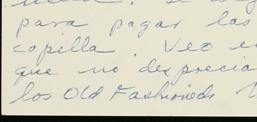 para pagar las
capilla. Veo
que no desprecia
los Old Fashioneds